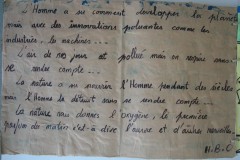 L'Homme a su comment developper la planète
mais avec des innovations polluantes comme les
industries, les machines...
L'air de nos jours est pollué mais on respire sans
se rendre compte...
La nature a su nourrir l'Homme pendant des siècles
mais l'Homme la détruit sans se rendre compte.
La nature nous donnes l'oxygène, le première
parfum du matin c'est-à-dire l'aurore et d'autres merveilles.
H.B.C